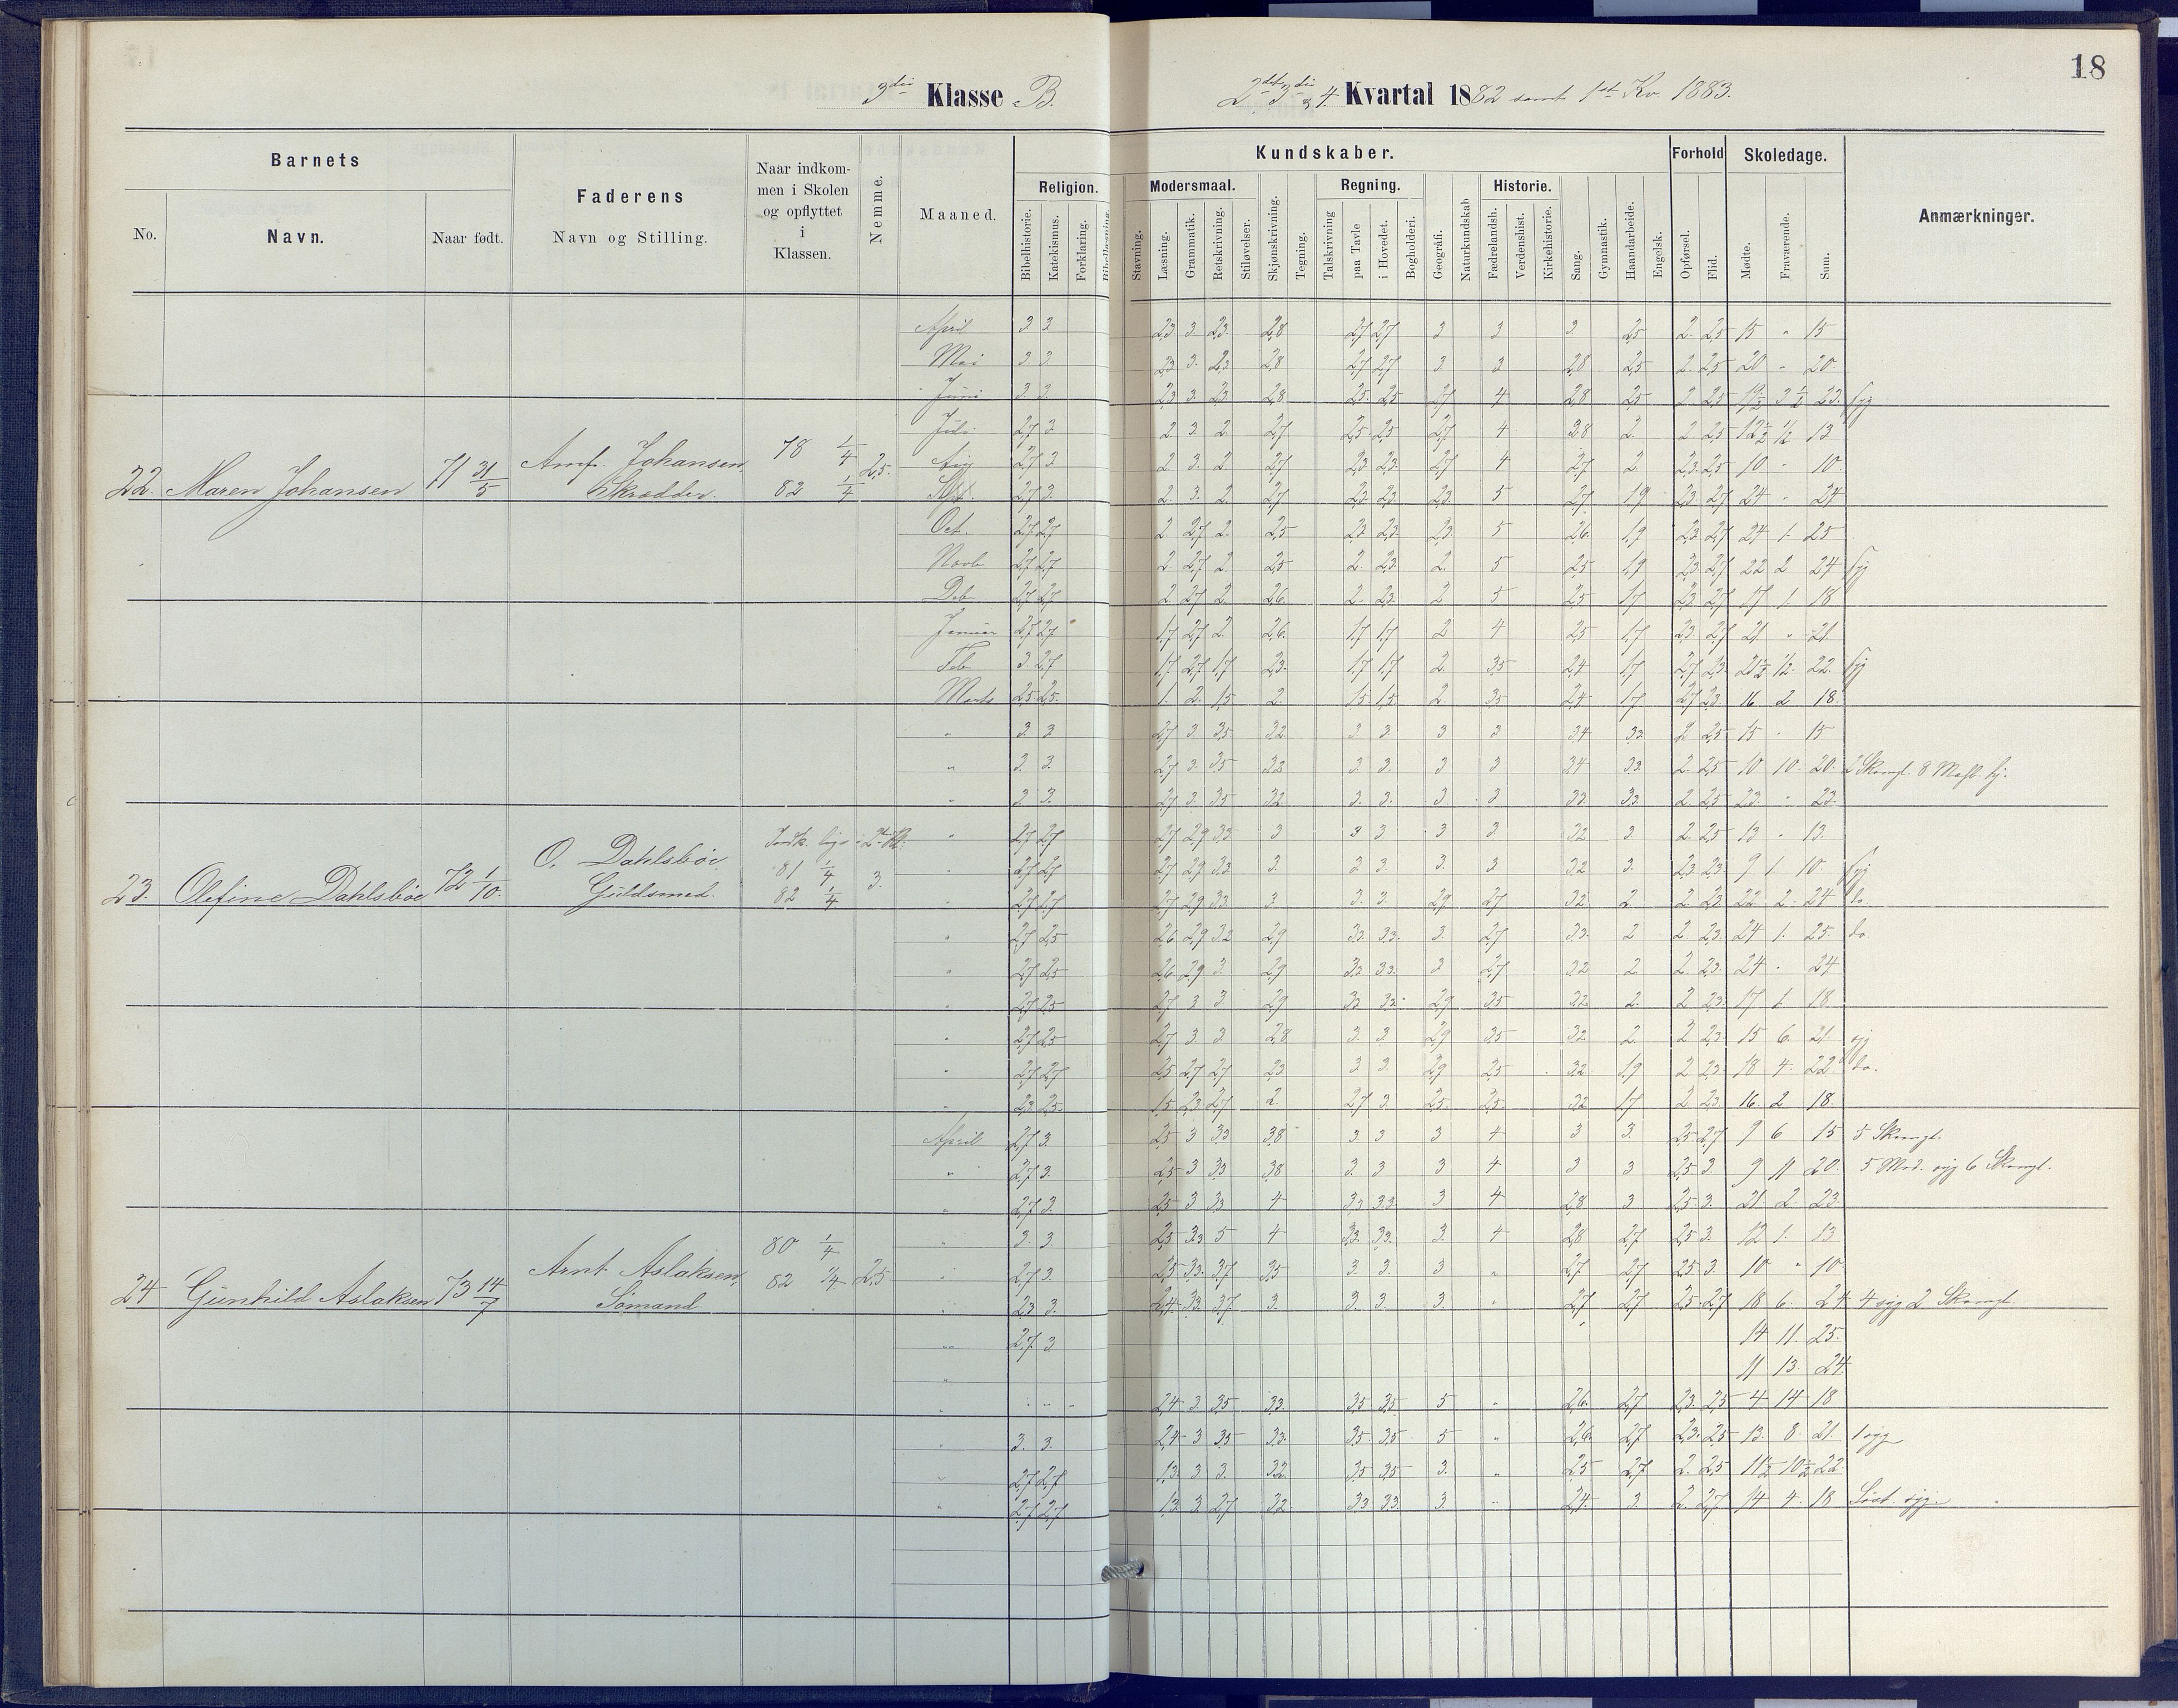 18
3die Klasse B.
2det 3die & 4. Kvartal 1882 samt 1st Kv. 1883.
Barnets
No.
Navn.
Naar født.
Faderens
Navn og Stilling.
Naar indkom-
men i Skolen
og opflyttet
i
Klassen.
Nemme.
Maaned.
Kundskaber.
Religion.
Bibelhistorie.
Katekismus.
Forklaring.
Bibellæsning.
Modersmaal.
Stavning.
Læsning.
Grammatik.
Retskrivning.
Stiløvelser.
Skjønskrivning.
Tegning.
Regning.
Talskrivning
paa Tavle
i Hovedet.
Bogholderi.
Geografi.
Naturkundskab
Historie.
Fædrelandsh.
Verdenshist.
Kirkehistorie.
Sang.
Gymnastik.
Haandarbeide.
Engelsk.
Forhold
Opførsel.
Flid.
Skoledage.
Mødte.
Fraværende.
Sum.
Anmærkninger.
22. Maren Johansen 71 31/5 Johansen Skrædder. 78 1/4 82 1/4 2,5.
April 3 3 2,3 3 2,3 2,8 2,7 2,7 3 3 3 2,5 2 2,5 15 " 15
Mai 3 3 2,3 3 2,3 2,8 2,7 2,7 3 3 2,8 2,5 2 2,5 20 " 20
Juni 3 3 2,3 3 2,3 2,8 2,5 2,5 2,7 4 2,8 2,5 2 2,5 19 1/2 3 1/2 23 syg
Juli 2,7 3 2 3 2 2,7 2,5 2,5 2,7 4 2,8 2 2 2,5 12 1/2 1/2 13
Aug 2,7 3 2 3 2 2,7 2,3 2,3 2,7 4 2,7 2 2,3 2,5 10 " 10
Sept. 2,7 3 2 3 2 2,7 2,3 2,3 2,3 5 2,7 1,9 2,3 2,7 24 " 24
Oct. 2,7 2,7 2 2,7 2 2,5 2,3 2,3 2,3 5 2,6 1,9 2,3 2,7 24 1 25
Novb 2,7 2,7 2 2,7 2 2,5 2 2,3 2 5 2,5 1,9 2,3 2,7 22 2 24 syg
Deb 2,7 2,7 2 2,7 2 2,6 2 2,3 2 5 2,5 1,7 2,3 2,7 17 1 18
Januar 2,7 2,7 1,7 2,7 2 2,6 1,7 1,7 2 4 2,5 1,7 2,3 2,7 21 " 21
Feb 3 2,7 1,7 2,7 1,7 2,3 1,7 1,7 2 3,5 2,4 1,7 2,7 2,3 21 1/2 1/2 22 syg
Marts 2,5 2,5 1 2 1,5 2 1,5 1,5 2 3,5 2,4 1,7 2,7 2,3 16 2 18
23. Olefine Dahlsbøe 72 1/10. O. Dahlsbøe Guldsmed. 81 1/4 82 1/4 3.
" 3 3 2,7 3 3,5 3,2 3 3 3 3 3,4 3,3 2 2,5 15 " 15
" 3 3 2,7 3 3,5 3,2 3 3 3 3 3,4 3,3 2 2,5 10 10 20
" 3 3 2,7 3 3,5 3,2 3 3 3 3 3,3 3,3 2 2,5 23 " 23
" 2,7 2,7 2,7 2,9 3,3 3 3 3 3 3 3,2 3 2 2,5 13 " 13
" 2,7 2,7 2,7 2,9 3,3 3 3 3 3 3 3,2 3 2,3 2,3 9 1 10 syg
" 2,7 2,7 2,7 2,9 3,3 3 3 3 2,9 2,7 3,2 2 2 2,3 22 2 24 do
" 2,7 2,5 2,6 2,9 3,2 2,9 3,3 3,3 3 2,7 3,3 2 2 2,3 24 1 25 do
" 2,7 2,5 2,6 2,9 3 2,9 3,2 3,3 3 2,7 3,2 2 2 2,3 24 " 24
" 2,7 2,5 2,7 3 3 2,9 3,2 3,2 2,9 3,5 3,2 2 2 2,3 17 1 18
" 2,7 2,5 2,7 3 3 2,8 3 3 2,9 3,5 3,2 2 2 2,3 15 6 21 syg
" 2,7 2,7 2,5 2,7 2,7 2,3 3 3 2,9 2,5 3,2 1,9 2 2,3 18 4 22 do.
" 2,3 2,5 1,5 2,3 2,7 2 2,7 3 2,5 2,5 3,2 1,7 2 2,3 16 2 18
24 Gunhild Aslaksen 73 14/7 Arnt Aslaksen, Sømand 80 1/4 82 1/4 2,5
April 2,7 3 2,5 3 3,3 3,8 3 3 3 4 3 3 2,5 2,7 9 6 15 5 Skomgl.
" 2,7 3 2,5 3 3,3 3,8 3 3 3 4 3 3 2,5 3 9 11 20 5 Mod. syg 6 Skomgl.
" 2,7 3 2,5 3 3,3 4 3,3 3,3 3 4 2,8 3 2,5 3 21 2 23
" 3 3 2,5 3,3 5 4 3,3 3,3 3 4 2,8 2,7 2,5 3 12 1 13
" 2,7 3 2,5 3,3 3,7 3,5 3 3 3 " 2,7 2,7 2,5 3 10 " 10
" 2,3 3 2,4 3,3 3,7 3 3 3 3 " 2,7 2,7 2,5 2,7 18 6 24 4 syg 2 Skomgl.
" 2,7 3 14 11 25
" 11 13 24
" " " " 2,4 3 3,5 3,3 3,5 3,5 5 " 2,6 2,7 2,3 2,5 4 14 18
" 3 3 2,4 3 3,5 3,3 3,5 3,5 5 " 2,6 2,7 2,3 2,5 13 8 21 1 syg
" 2,7 2,7 1,3 3 3 3,2 3,5 3,5 3 " 2,5 2,7 2 2,5 11 1/2 10 1/2 22
" 2,7 2,7 1,3 3 2,7 3,2 3,3 3,3 3 " 2,4 3 2 2,7 14 4 18 syg